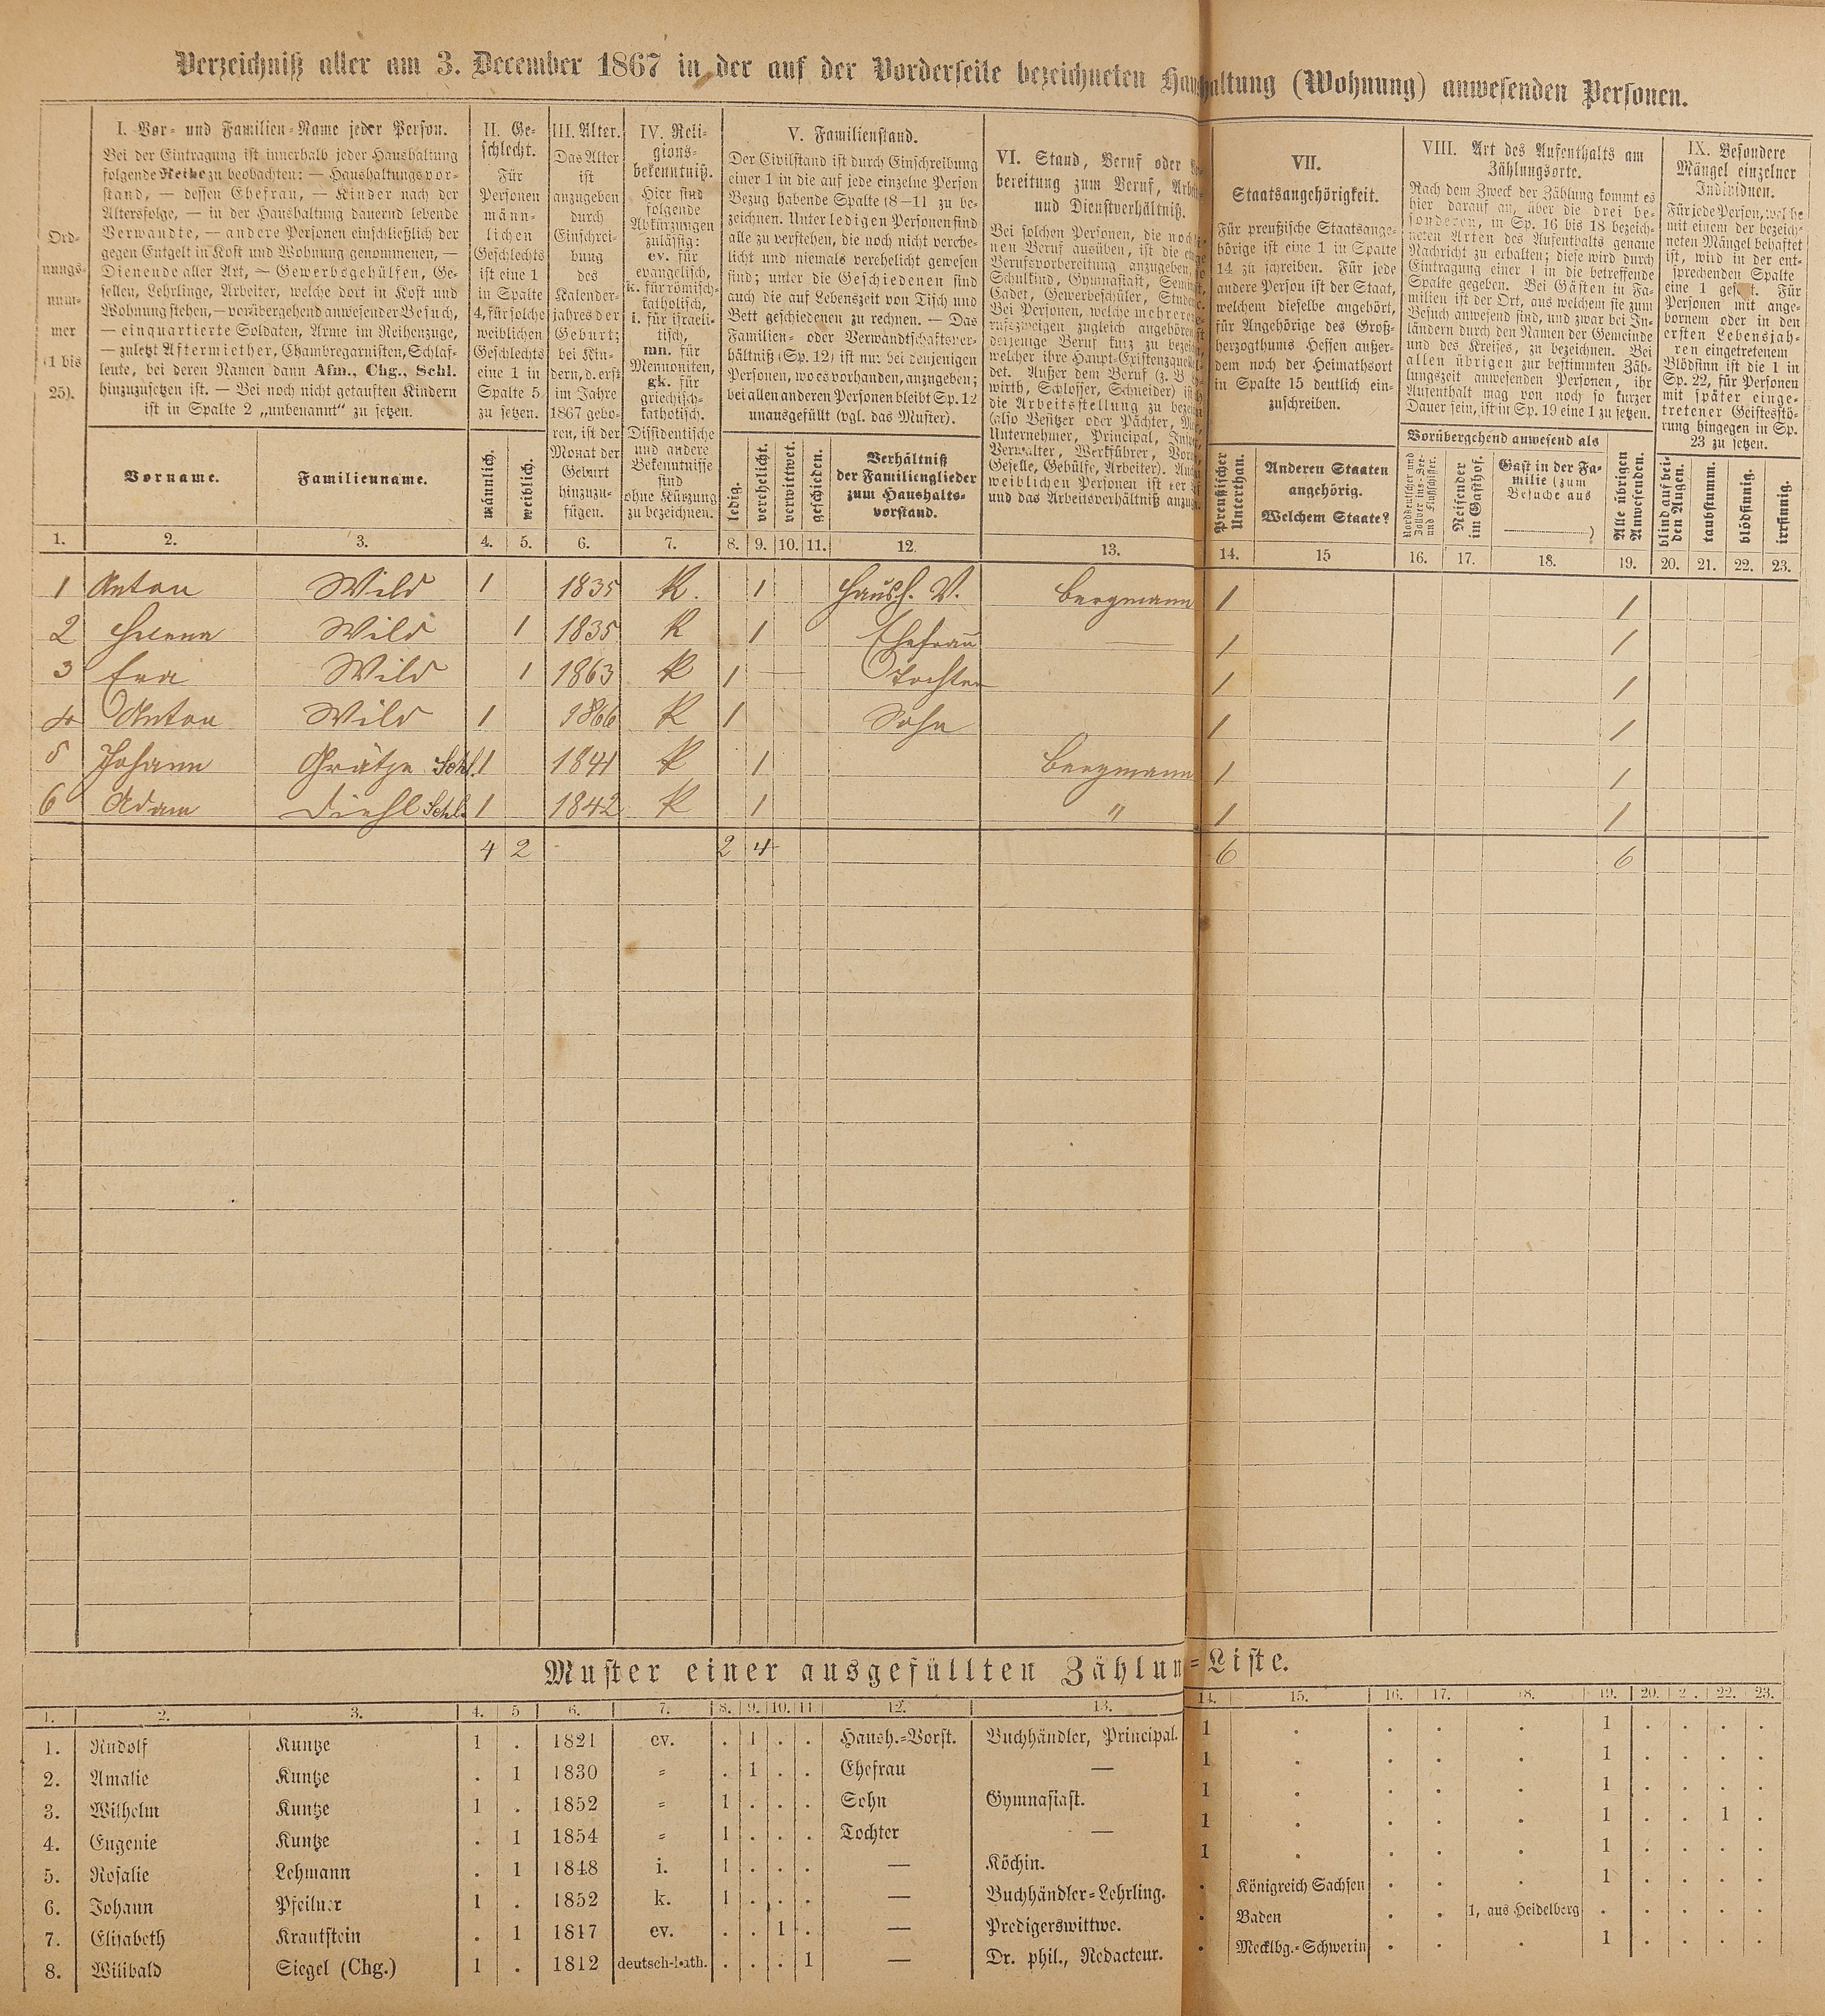 Verzeichniß aller am 3. December 1867 in der auf der Vorderseite bezeichneten Haushaltung (Wohnung) anwesenden Personen.
Ord-
nungs-
num-
mer
(1 bis
25).
I. Vor- und Familien-Name jeder Person.
Bei der Eintragung ist innerhalb jeder Haushaltung
folgende Reihe zu beobachten: — Haushaltungsvor-
stand, — dessen Ehefrau, — Kinder nach der
Altersfolge, — in der Haushaltung dauernd lebende
Verwandte, — andere Personen einschließlich der
gegen Entgelt in Kost und Wohnung genommenen, —
Dienende aller Art, — Gewerbsgehülfen, Ge-
sellen, Lehrlinge, Arbeiter, welche dort in Kost und
Wohnung stehen, — vorübergehend anwesender Besuch,
— einquartierte Soldaten, Arme im Reihenzuge,
— zuletzt Aftermiether, Chambregarnisten, Schlaf-
leute, bei deren Namen dann Afm., Chg., Schl.
hinzuzusetzen ist. — Bei noch nicht getauften Kindern
ist in Spalte 2 „unbenannt“ zu setzen.
Vorname.
Familienname.
II. Ge-
schlecht.
Für
Personen
männ-
lichen
Geschlechts
ist eine 1
in Spalte
4, für solche
weiblichen
Geschlechts
eine 1 in
Spalte 5
zu setzen.
männlich.
weiblich.
III. Alter.
Das Alter
ist
anzugeben
durch
Einschrei-
bung
des
Kalender-
jahres der
Geburt;
bei Kin-
dern, d. erst
im Jahre
1867 gebo-
ren, ist der
Monat der
Geburt
hinzuzu-
fügen.
IV. Reli-
gions-
bekenntniß.
Hier sind
folgende
Abkürzungen
zulässig:
ev. für
evangelisch,
k. für römisch-
katholisch,
i. für israeli-
tisch,
mn. für
Mennoniten,
gk. für
griechisch-
katholisch.
Dissidentische
und andere
Bekenntnisse
sind
ohne Kürzung
zu bezeichnen.
V. Familienstand.
Der Civilstand ist durch Einschreibung
einer 1 in die auf jede einzelne Person
Bezug habende Spalte (8—11) zu be-
zeichnen. Unter ledigen Personen sind
alle zu verstehen, die noch nicht verehe-
licht und niemals verehelicht gewesen
sind; unter die Geschiedenen sind
auch die auf Lebenszeit von Tisch und
Bett geschiedenen zu rechnen. — Das
Familien- oder Verwandtschaftsver-
hältniß (Sp. 12) ist nur bei denjenigen
Personen, wo es vorhanden, anzugeben;
bei allen anderen Personen bleibt Sp. 12
unausgefüllt (vgl. das Muster).
ledig.
verehelicht.
verwittwet.
geschieden.
Verhältniß
der Familienglieder
zum Haushalts-
vorstand.
VI. Stand, Beruf oder
bereitung zum Beruf,
und Dienstverhältniß.
Bei solchen Personen, die
nen Beruf ausüben, ist die
Berufsvorbereitung anzugeben,
Schulkind, Gymnasiast,
Cadet, Gewerbeschüler,
Bei Personen, welche mehreren
rufszweigen zugleich angehören,
derjenige Beruf kurz zu
welcher ihre Haupt-Existenzquelle
det. Außer dem Beruf (z. B.
wirth, Schlosser, Schneider)
die Arbeitsstellung zu
(also Besitzer oder Pächter,
Unternehmer, Principal,
Verwalter, Werkführer,
Geselle, Gehülfe, Arbeiter).
weiblichen Personen ist der
und das Arbeitsverhältniß
VII.
Staatsangehörigkeit.
Für preußische Staatsange-
hörige ist eine 1 in Spalte
14 zu schreiben. Für jede
andere Person ist der Staat,
welchem dieselbe angehört,
für Angehörige des Groß-
herzogthums Hessen außer-
dem noch der Heimathsort
in Spalte 15 deutlich ein-
zuschreiben.
Preußischer
Unterthan.
Anderen Staaten
angehörig.
Welchem Staate?
VIII. Art des Aufenthalts am
Zählungsorte.
Nach dem Zweck der Zählung kommt es
hier darauf an, über die drei be-
sonderen, in Sp. 16 bis 18 bezeich-
neten Arten des Aufenthalts genaue
Nachricht zu erhalten; diese wird durch
Eintragung einer 1 in die betreffende
Spalte gegeben. Bei Gästen in Fa-
milien ist der Ort, aus welchem sie zum
Besuch anwesend sind, und zwar bei In-
ländern durch den Namen der Gemeinde
und des Kreises, zu bezeichnen. Bei
allen übrigen zur bestimmten Zäh-
lungszeit anwesenden Personen, ihr
Aufenthalt mag von noch so kurzer
Dauer sein, ist in Sp. 19 eine 1 zu setzen.
Vorübergehend anwesend als
Norddeutscher und
Zollver ins-See-
und Flußschiffer.
Reisender
im Gasthof.
Gast in der Fa-
milie (zum
Besuche aus
)
Alle übrigen
Anwesenden.
IX. Besondere
Mängel einzelner
Individuen.
Für jede Person, welche
mit einem der bezeich-
neten Mängel behaftet
ist, wird in der ent-
sprechenden Spalte
eine 1 gesetzt. Für
Personen mit ange-
bornem oder in den
ersten Lebensjah-
ren eingetretenem
Blödsinn ist die 1 in
Sp. 22, für Personen
mit später einge-
tretener Geistesstö-
rung hingegen in Sp.
23 zu setzen.
blind auf bei-
den Augen.
taubstumm.
blödsinnig.
irrsinnig.
1. 2. 3. 4. 5. 6. 7. 8. 9. 10. 11. 12. 13. 14. 15 16. 17. 18. 19. 20. 21. 22. 23.
1 Anton Wild 1 1835 K. 1 Haush. V. Bergmann 1 1
2 Helena Wild 1 1835 K 1 Ehefrau — 1 1
3 Eva Wild 1 1863 K 1 — Tochter 1 1
4 Anton Wild 1 1866 K 1 Sohn 1 1
5 Johann Grätze Schl. 1 1841 K 1 Bergmann 1 1
6 Adam Diehl Schl. 1 1842 K 1 " 1 1
4 2 2 4 6 6
Muster einer ausgefüllten Zählungs-Liste.
1. 2. 3. 4. 5 6. 7. 8. 9. 10. 11 12. 13. 14. 15. 16. 17. 18. 19. 20. 2 . 22. 23.
1. Rudolf Kuntze 1 . 1821 ev. . 1 . . Haush.-Vorst. Buchhändler, Principal. 1 . . . . 1 . . . .
2. Amalie Kuntze . 1 1830 = . 1 . . Ehefrau — 1 . . . . 1 . . . .
3. Wilhelm Kuntze 1 . 1852 = 1 . . . Sohn Gymnasiast. 1 . . . . 1 . . . .
4. Eugenie Kuntze . 1 1854 = 1 . . . Tochter — 1 . . . . 1 . . 1 .
5. Rosalie Lehmann . 1 1848 i. 1 . . . — Köchin. 1 . . . . 1 . . . .
6. Johann Pfeilner 1 . 1852 k. 1 . . . — Buchhändler-Lehrling. . Königreich Sachsen . . . 1 . . . .
7. Elisabeth Krautstein . 1 1817 ev. . . 1 . — Predigerswittwe. . Baden . . 1, aus Heidelberg . . . . .
8. Wilibald Siegel (Chg.) 1 . 1812 deutsch-kath. . . . 1 — Dr. phil., Redacteur. . Mecklbg.-Schwerin . . . 1 . . . .